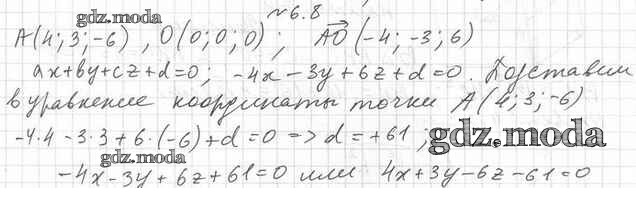 №6.8
gdz.moda
A(4;3;-6), O(0;0;0); AO⃗(-4;-3;6)
ax+by+cz+d=0; -4x-3y+6z+d=0. Подставим
в уравнение координаты точки A(4;3;-6)
-4·4-3·3+6·(-6)+d=0 => d=+61,
gdz.moda
gdz.moda
-4x-3y+6z+61=0 или 4x+3y-6z-61=0